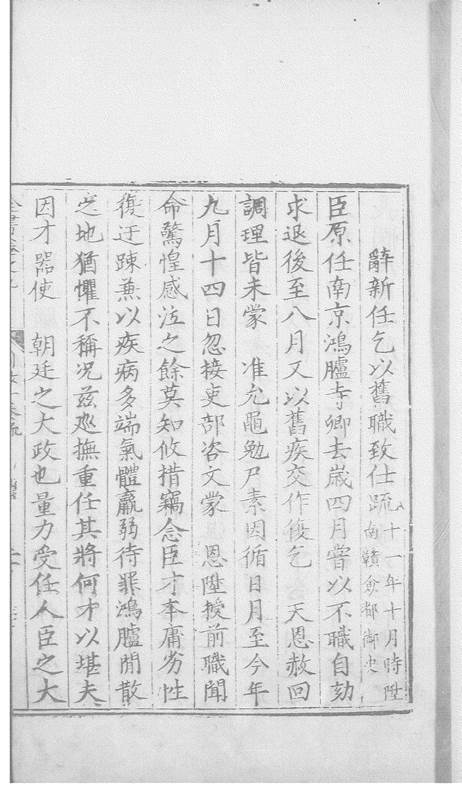 辭新任乞以舊職致仕疏 十一年十月時陞南贛僉都御史
臣原任南京鴻臚寺卿去歲四月嘗以不職自劾
求退後至八月又以舊疾交作復乞 天恩赦回
調理皆未蒙 准允黽勉尸素因循日月至今年
九月十四日忽接吏部咨文蒙 恩陞授前職聞
命驚惶感泣之餘莫知攸措竊念臣才本庸劣性
復迂踈兼以疾病多端氣體羸弱待罪鴻臚閒散
之地猶懼不稱况茲廵撫重任其將何才以堪夫
因才器使 朝廷之大政也量力受任人臣之大